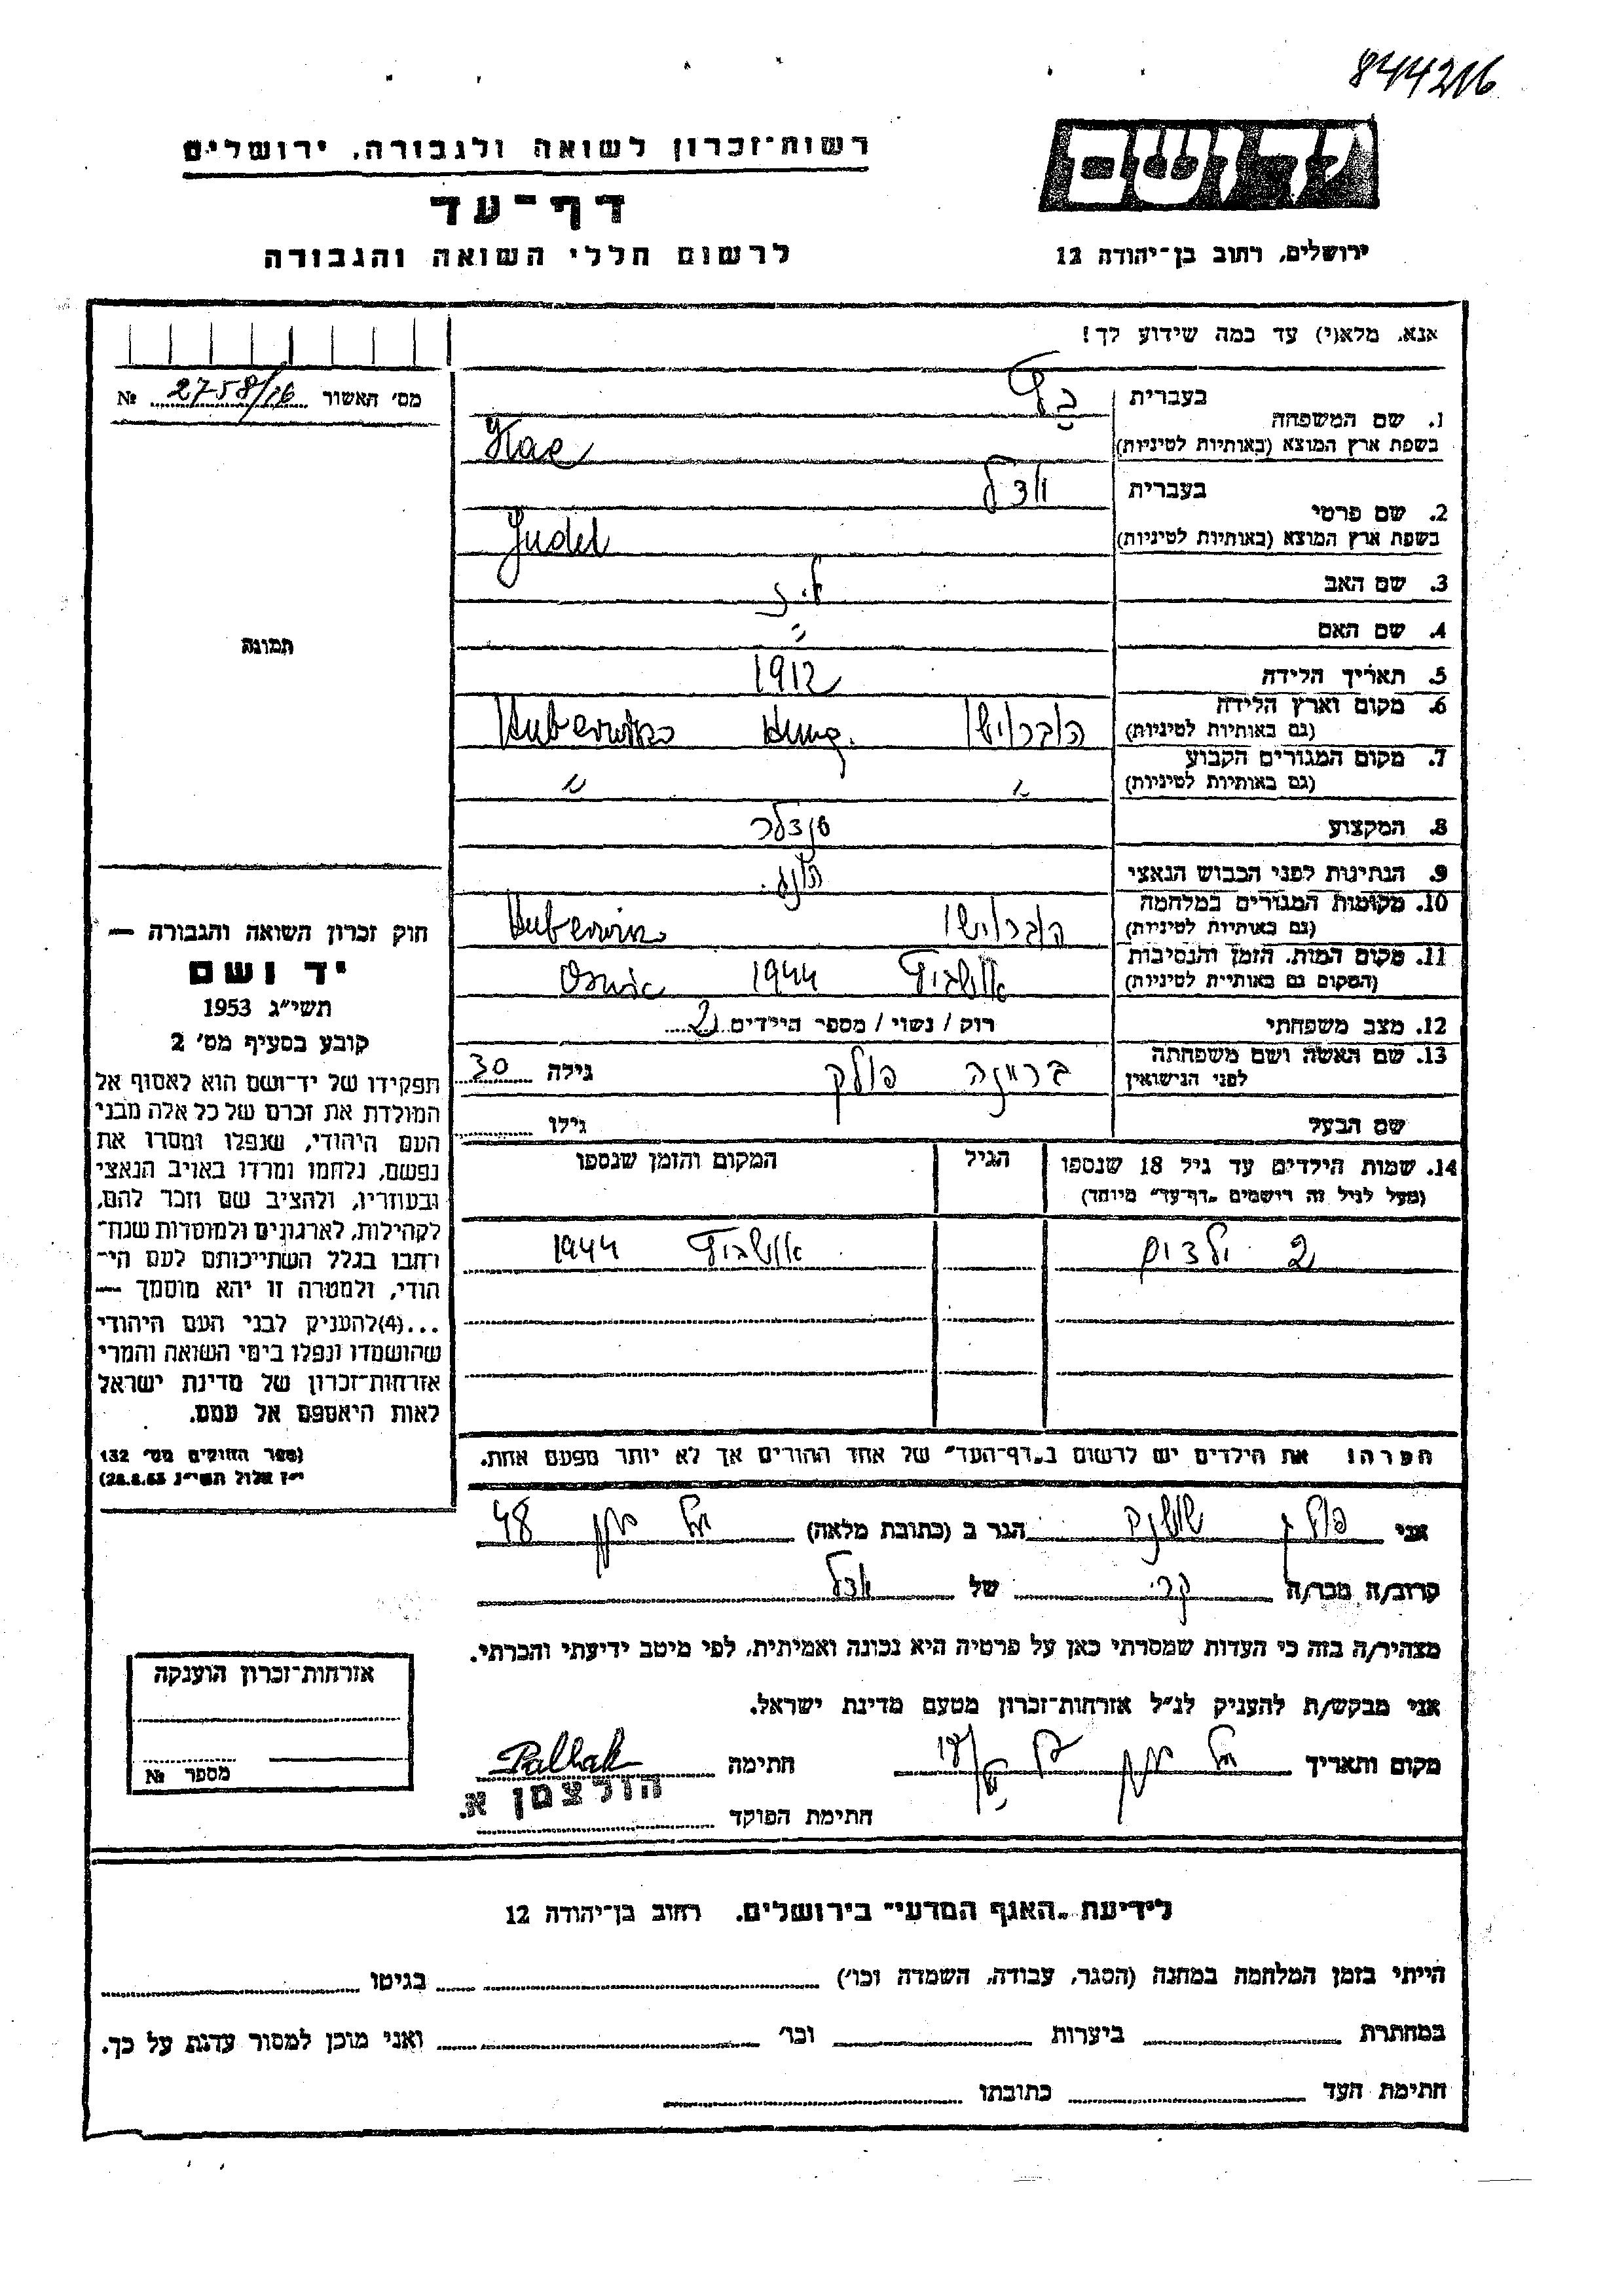 844216
ידושם
ירושלים, רחוב בן־יהודה 12
רשות־זכרון לשואה ולגבורה, ירושלים
דף־עד
לרשום חללי השואה והגבורה
אנא, מלא(י) עד כמה שידוע לך!
מס׳ האשור 2758/16 №
1. שם המשפחה
בעברית כץ
בשפת ארץ המוצא (באותיות לטיניות)
2. שם פרטי
בעברית יודל
בשפת ארץ המוצא (באותיות לטיניות) Judel
3. שם האב
4. שם האם
5. תאריך הלידה 1912
6. מקום וארץ הלידה
(גם באותיות לטיניות)
7. מקום המגורים הקבוע
(גם באותיות לטיניות)
8. המקצוע סנדלר
9. הנתינות לפני הכבוש הנאצי הונג.
10. מקומות המגורים במלחמה
(גם באותיות לטיניות)
11. מקום המות, הזמן והנסיבות
(המקום גם באותיות לטיניות) אושביץ 1944
12. מצב משפחתי
רוק / נשוי / מספר הילדים 2
13. שם האשה ושם משפחתה
לפני הנישואין
פולק גילה 30
שם הבעל גילו
14. שמות הילדים עד גיל 18 שנספו
(מעל לגיל זה רישמים „דף־עד” מיוחד)
הגיל
המקום והזמן שנספו
2 ילדים אושביץ 1944
הערה! את הילדים יש לרשום ב„דף־העד” של אחד ההורים אך לא יותר מפעם אחת.
תמונה
חוק זכרון השואה והגבורה —
יד ושם
תשי״ג 1953
קובע בסעיף מס׳ 2
תפקידו של יד־ושם הוא לאסוף אל
המולדת את זכרם של כל אלה מבני
העם היהודי, שנפלו ומסרו את
נפשם, נלחמו ומרדו באויב הנאצי
ובעוזריו, ולהציב שם וזכר להם,
לקהילות, לארגונים ולמוסדות שנח־
רחבו בגלל השתייכותם לעם הי־
הודי, ולמטרה זו יהא מוסמך —
...(4)להעניק לבני העם היהודי
שהושמדו ונפלו בימי השואה והמרי
אזרחות־זכרון של מדינת ישראל
לאות היאספם אל עמם.
(ספר החוקים מס׳ 132
י״ז אלול תשי״ג 28.8.53)
אני הגר ב (כתובת מלאה) 48
קרוב/ה מכר/ה של
מצהיר/ה בזה כי העדות שמסרתי כאן על פרטיה היא נכונה ואמיתית, לפי מיטב ידיעתי והכרתי.
אני מבקש/ת להעניק לנ״ל אזרחות־זכרון מטעם מדינת ישראל.
מקום ותאריך חתימה
חתימת הפוקד הולצמן א.
אזרחות־זכרון הוענקה
מספר №
לידיעת „האגף המדעי” בירושלים, רחוב בן־יהודה 12
הייתי בזמן המלחמה במחנה (הסגר, עבודה, השמדה וכו׳) בגיטו
במחתרת ביערות וכו׳ ואני מוכן למסור עדות על כך.
חתימת העד כתובתו